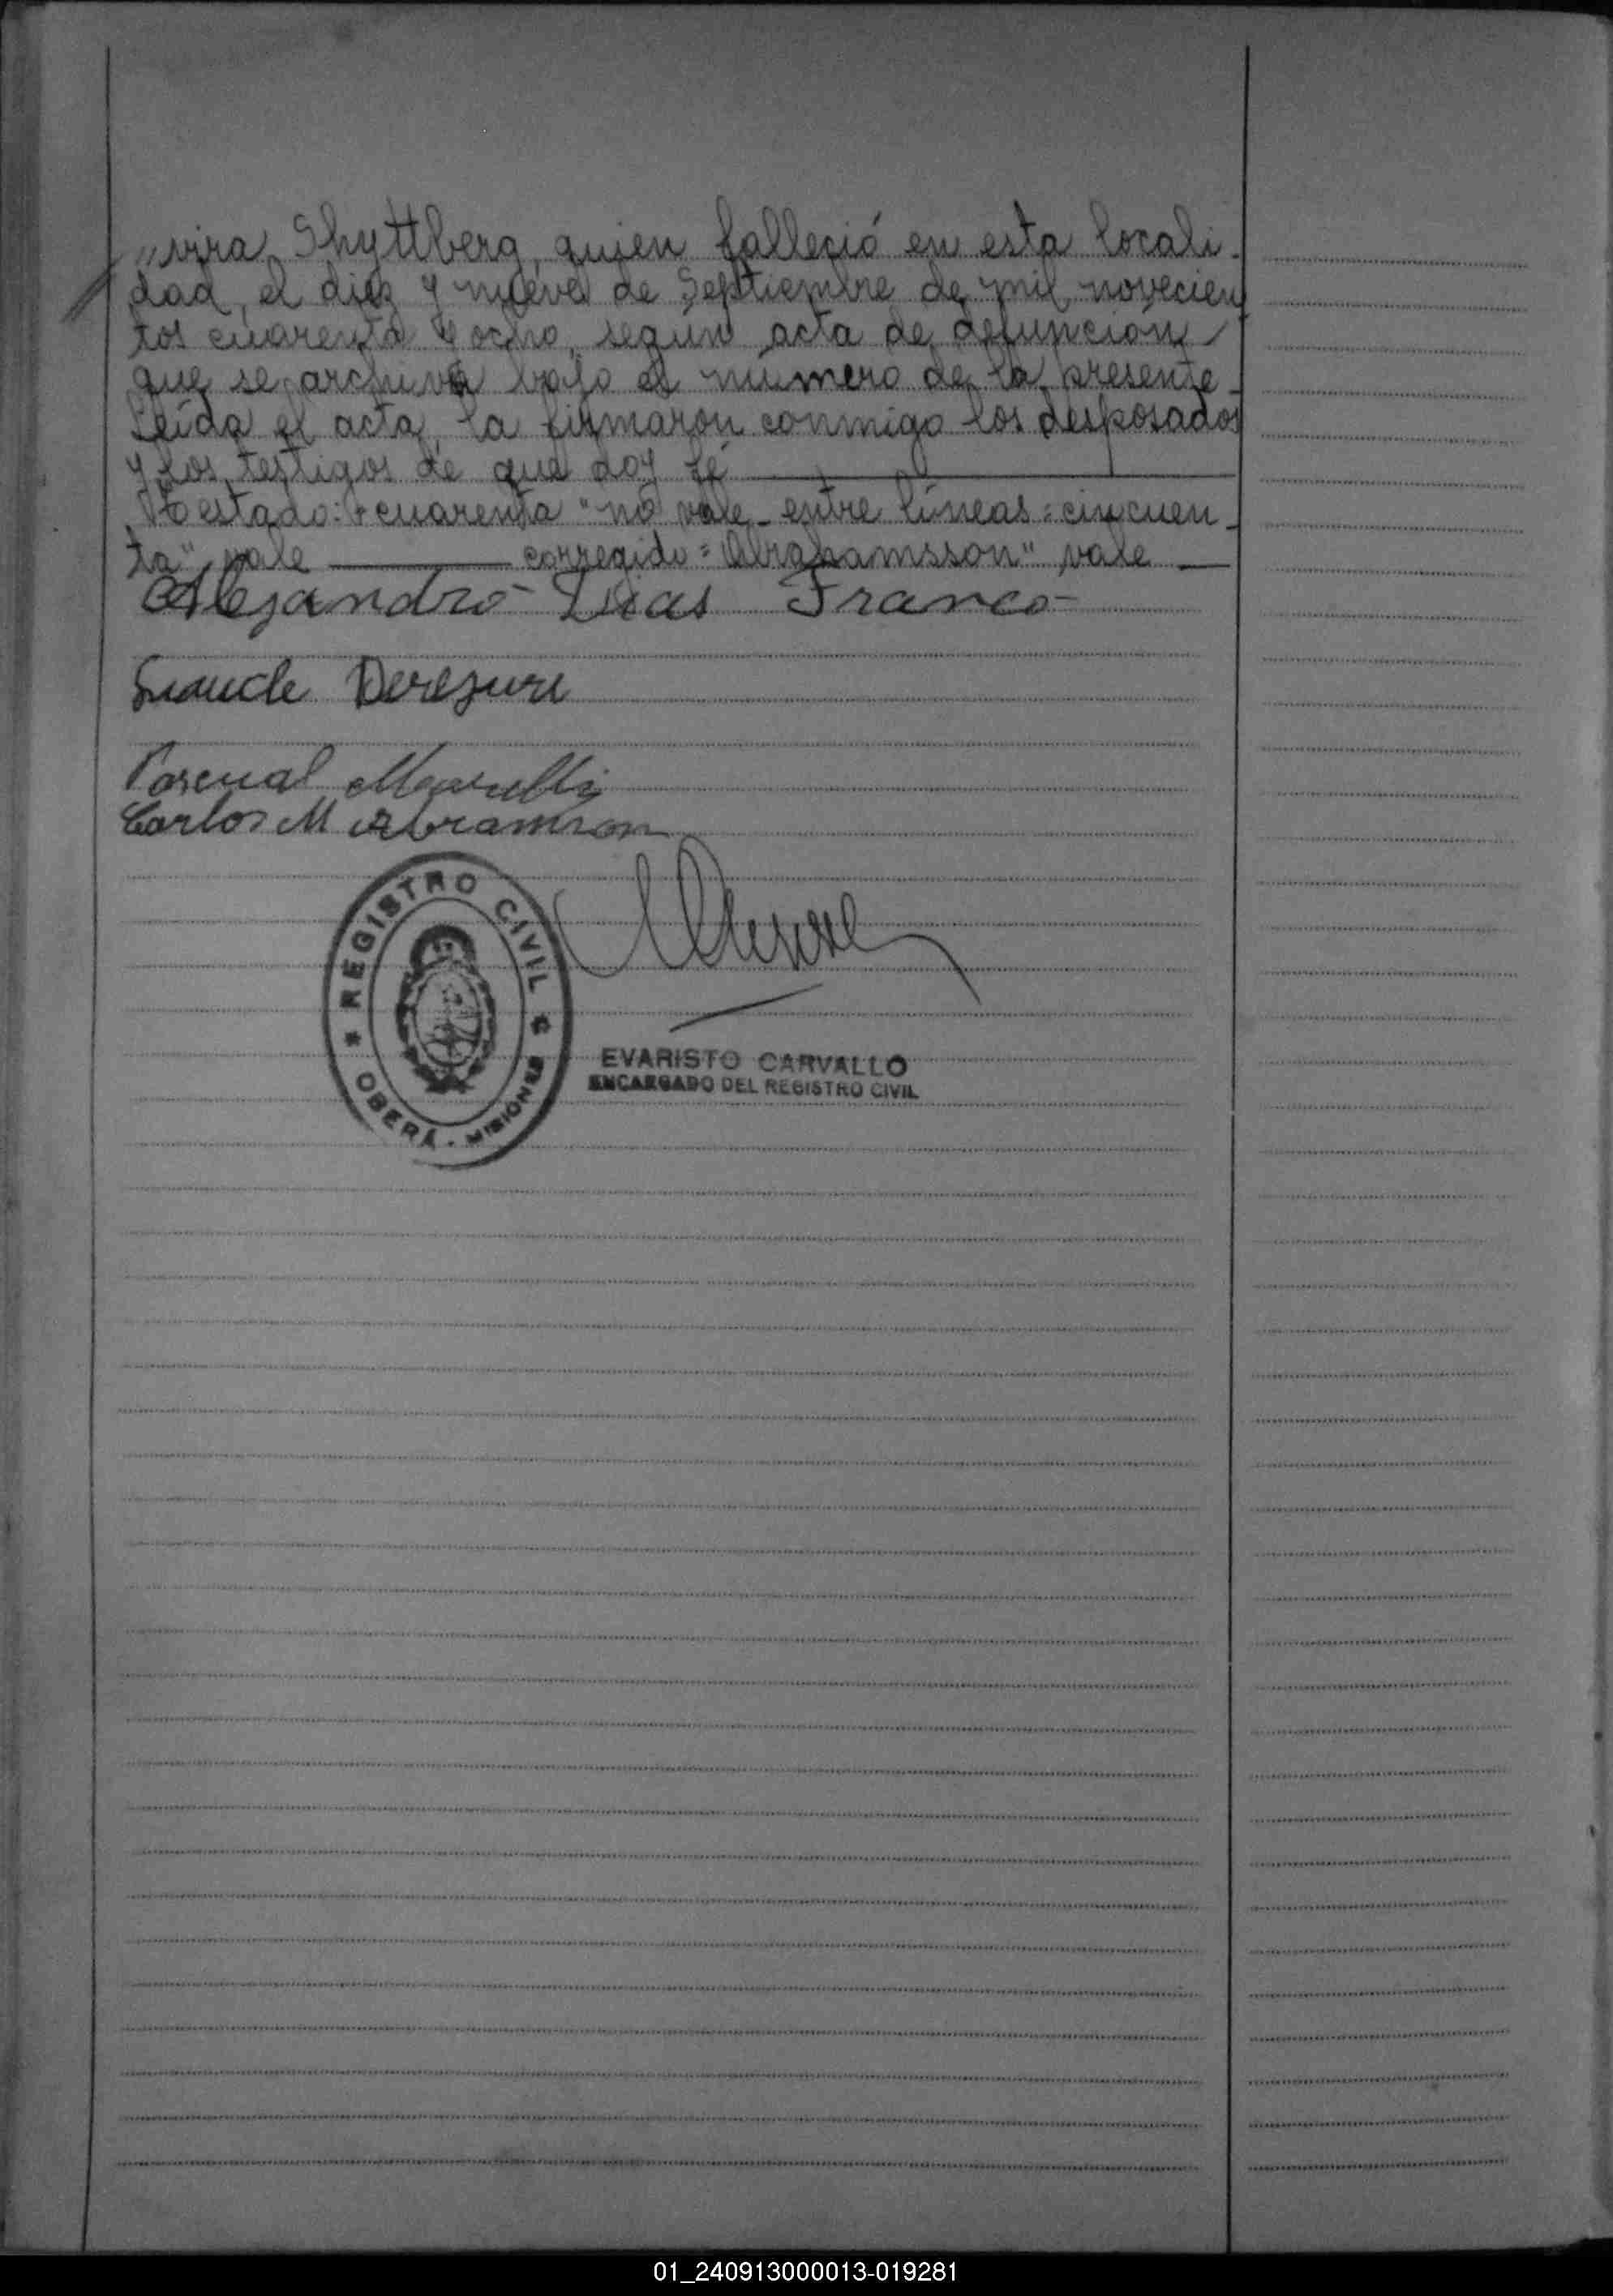 „vira Shyttberg, quien falleció en esta locali-
dad, el diez y nueve de Septiembre de mil novecien
tos cuarenta y ocho, segun acta de defunción
que se archiva bajo el numero de la presente-
Leída el acta, la firmaron conmigo los desposados
y los testigos de que doy fé
Testado: "cuarenta" no vale - entre líneas: cincuen-
ta" vale corregido: "Abrahamsson" vale
Alejandro Franco
Pascual
Carlos M Abramson
REGISTRO CIVIL
OBERÁ - MISIONES
EVARISTO CARVALLO
ENCARGADO DEL REGISTRO CIVIL
01_240913000013-019281